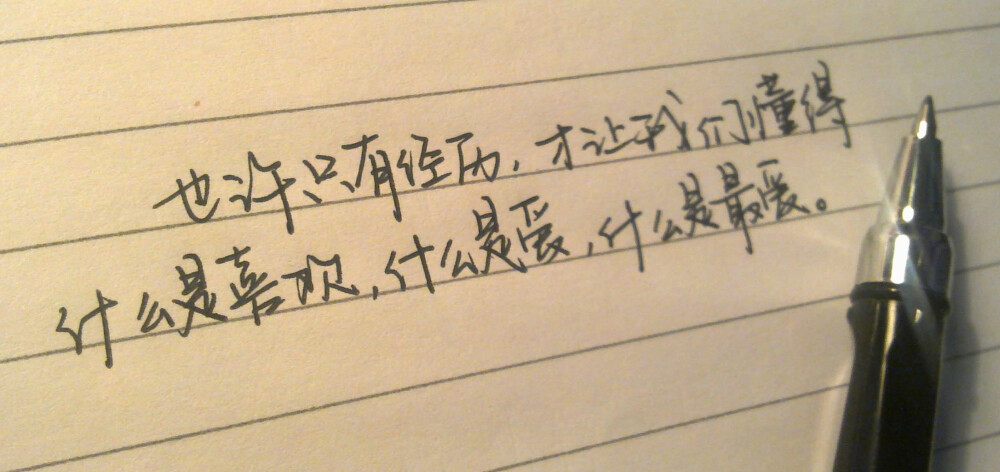 也许只有经历,才让我们懂得
什么是喜欢,什么是爱,什么是最爱。